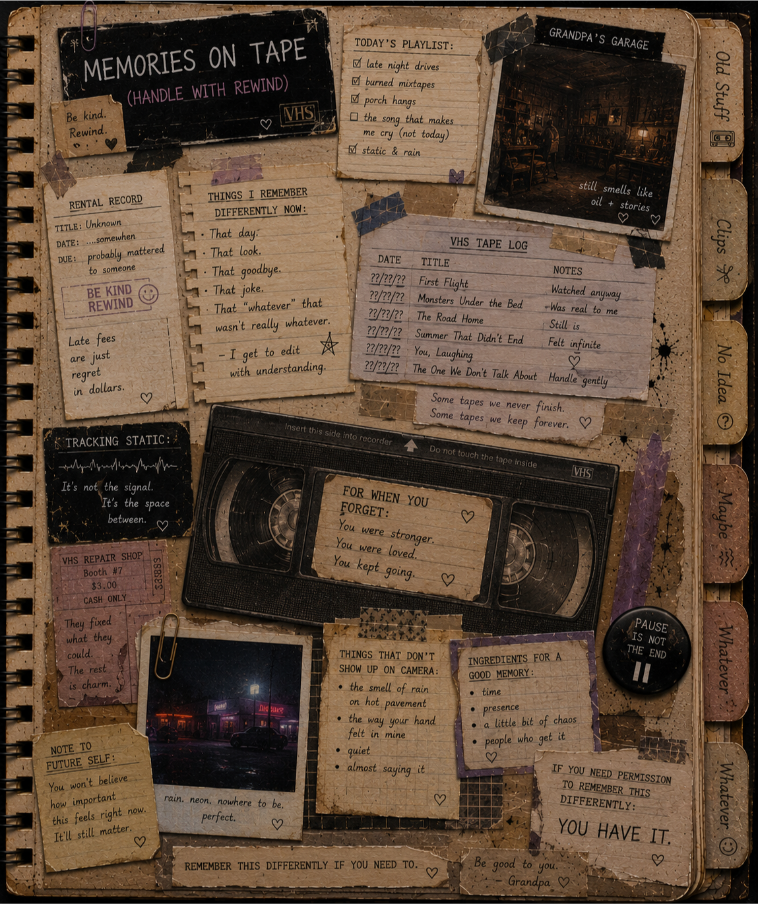 MEMORIES ON TAPE
(HANDLE WITH REWIND)
Be kind.
Rewind.
VHS
TODAY'S PLAYLIST:
late night drives
burned mixtapes
porch hangs
the song that makes
me cry (not today)
static & rain
GRANDPA'S GARAGE
still smells like
oil + stories
Old Stuff
Clips
No Idea
Maybe
Whatever
Whatever
RENTAL RECORD
TITLE: Unknown
DATE: ....somewhen
DUE: probably mattered
to someone
BE KIND
REWIND
Late fees
are just
regret
in dollars.
THINGS I REMEMBER
DIFFERENTLY NOW:
• That day.
• That look.
• That goodbye.
• That joke.
• That "whatever" that
wasn't really whatever.
– I get to edit
with understanding.
VHS TAPE LOG
DATE TITLE NOTES
??/??/?? First Flight Watched anyway
??/??/?? Monsters Under the Bed Was real to me
??/??/?? The Road Home Still is
??/??/?? Summer That Didn't End Felt infinite
??/??/?? You, Laughing
??/??/?? The One We Don't Talk About Handle gently
Some tapes we never finish.
Some tapes we keep forever.
TRACKING STATIC:
It's not the signal.
It's the space
between.
Insert this side into recorder Do not touch the tape inside
VHS
FOR WHEN YOU
FORGET:
You were stronger.
You were loved.
You kept going.
VHS REPAIR SHOP
Booth #7
$3.00
CASH ONLY
They fixed
what they
could.
The rest
is charm.
PAUSE
IS NOT
THE END
rain. neon. nowhere to be.
perfect.
THINGS THAT DON'T
SHOW UP ON CAMERA:
• the smell of rain
on hot pavement
• the way your hand
felt in mine
• quiet
• almost saying it
INGREDIENTS FOR A
GOOD MEMORY:
• time
• presence
• a little bit of chaos
• people who get it
NOTE TO
FUTURE SELF:
You won't believe
how important
this feels right now.
It'll still matter.
IF YOU NEED PERMISSION
TO REMEMBER THIS
DIFFERENTLY:
YOU HAVE IT.
REMEMBER THIS DIFFERENTLY IF YOU NEED TO.
Be good to you.
– Grandpa